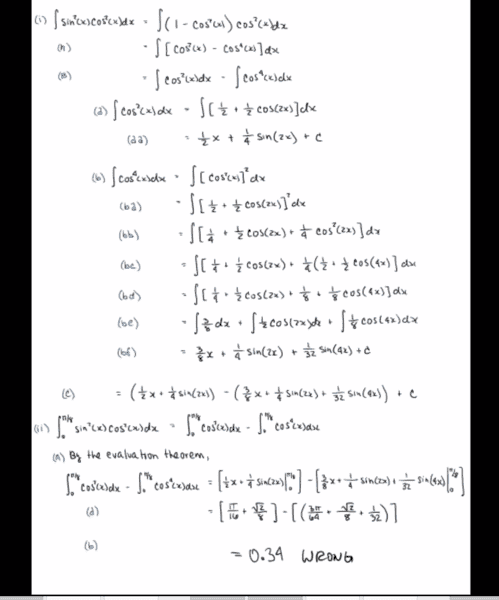 (i) ∫ sin²(x)cos²(x)dx = ∫(1 - cos²(x)) cos²(x)dx
(A) = ∫[cos²(x) - cos⁴(x)]dx
(B) = ∫cos²(x)dx - ∫cos⁴(x)dx
(a) ∫cos²(x)dx = ∫[1/2 + 1/2 cos(2x)]dx
(aa) = 1/2 x + 1/4 sin(2x) + C
(b) ∫cos⁴(x)dx = ∫[cos²(x)]²dx
(ba) = ∫[1/2 + 1/2 cos(2x)]²dx
(bb) = ∫[1/4 + 1/2 cos(2x) + 1/4 cos²(2x)]dx
(bc) = ∫[1/4 + 1/2 cos(2x) + 1/4(1/2 + 1/2 cos(4x)] dx
(bd) = ∫[1/4 + 1/2 cos(2x) + 1/8 + 1/8 cos(4x)]dx
(be) = ∫3/8 dx + ∫1/2 cos(2x)dx + ∫1/8 cos(4x)dx
(bf) = 3/8 x + 1/4 sin(2x) + 1/32 sin(4x) + C
(C) = (1/2 x + 1/4 sin(2x)) - (3/8 x + 1/4 sin(2x) + 1/32 sin(4x)) + C
(ii) ∫₀^π/8 sin²(x)cos²(x)dx = ∫₀^π/8 cos²(x)dx - ∫₀^π/8 cos⁴(x)dx
(A) By the evaluation theorem,
∫₀^π/8 cos²(x)dx - ∫₀^π/8 cos⁴(x)dx = [1/2 x + 1/4 sin(2x)|₀^π/8] - [3/8 x + 1/4 sin(2x) + 1/32 sin(4x)|₀^π/8]
(a) = [π/16 + √2/8] - [(3π/64 + √2/8 + 1/32)]
(b)
= 0.34 WRONG